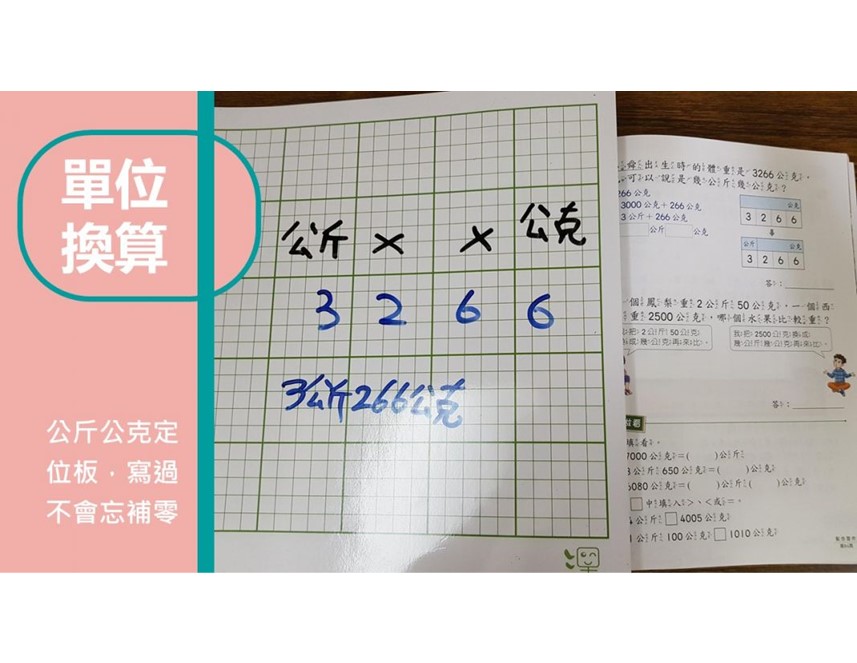 單位
換算
公斤公克定
位板，寫過
不會忘補零
公斤 × × 公克
3 2 6 6
3公斤266公克
舜出生時的體重是 3266 公克。
可以說是幾公斤幾公克？
266 公克
3000 公克＋266 公克
3 公斤＋266 公克
公斤 公克
公克
3 2 6 6
公斤 公克
3 2 6 6
答：
個鳳梨重 2 公斤 50 公克，一個西
重 2500 公克，哪個水果比較重？
把 2 公斤 50 公克
成幾公克再來比。
我把 2500 公克換成
幾公斤幾公克再來比。
答：
填看。
7000 公克＝( )公斤
3 公斤 650 公克＝( )公克
6080 公克＝( )公斤( )公克
□中填入＞、＜或＝。
公斤□4005 公克
1 公斤 100 公克□1010 公克